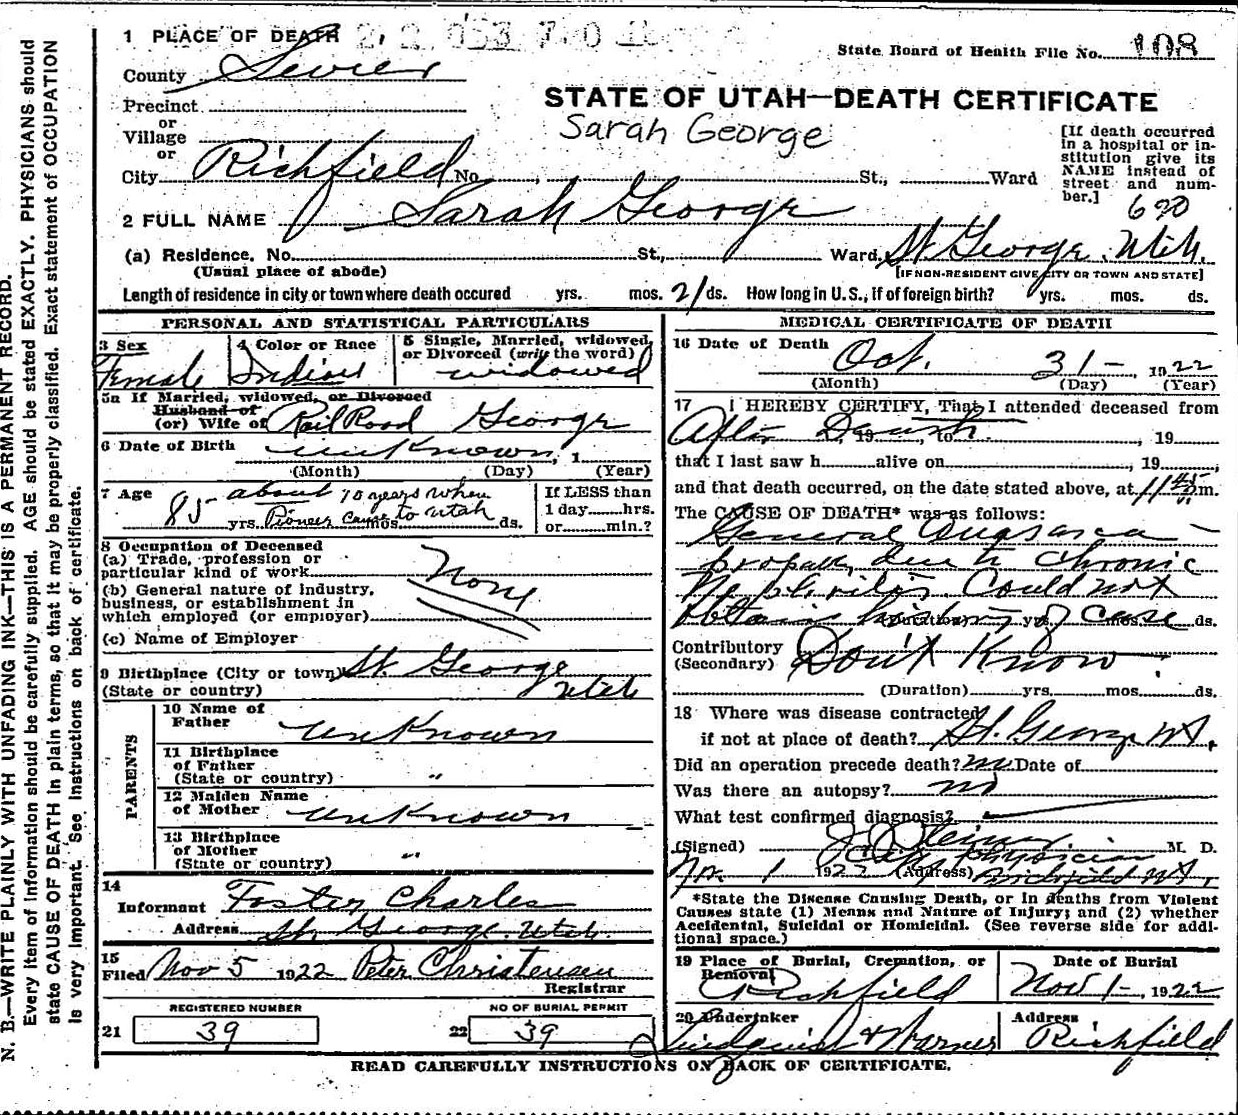 1 PLACE OF DEATH
State Board of Health File No. 108
County Sevier
STATE OF UTAH—DEATH CERTIFICATE
Precinct
or
Village
or
Sarah George
[If death occurred in a hospital or in-stitution give its NAME instead of street and num-ber.]
City Richfield No. , St., Ward
620
2 FULL NAME Sarah George
(a) Residence. No. St., Ward. St George. Utah.
(Usual place of abode) [IF NON-RESIDENT GIVE CITY OR TOWN AND STATE]
Length of residence in city or town where death occured yrs. mos. 21 ds. How long in U.S., if of foreign birth? yrs. mos. ds.
PERSONAL AND STATISTICAL PARTICULARS
3 Sex Female
4 Color or Race Indian
5 Single, Married, widowed, or Divorced (write the word) widowed
5a If Married, widowed, or Divorced
Husband of
(or) Wife of Rail Road George
6 Date of Birth unKnown, 1
(Month) (Day) (Year)
7 Age 85 yrs. mos. ds.
about 10 years when
Pioneer came to Utah
If LESS than
1 day hrs.
or min.?
8 Occupation of Deceased
(a) Trade, profession or
particular kind of work None
(b) General nature of Industry,
business, or establishment in
which employed (or employer)
(c) Name of Employer
9 Birthplace (City or town) St. George
(State or country) Utah
PARENTS
10 Name of
Father unKnown
11 Birthplace
of Father
(State or country) "
12 Maiden Name
of Mother unKnown
13 Birthplace
of Mother
(State or country) "
14
Informant Foster Charles
Address St. George. Utah.
15
Filed Nov 5 1922 Peter Christensen
Registrar
REGISTERED NUMBER
21 39
NO OF BURIAL PERMIT
22 39
MEDICAL CERTIFICATE OF DEATH
16 Date of Death Oct. 31- , 1922
(Month) (Day) (Year)
17 I HEREBY CERTIFY, That I attended deceased from
After Death, 19 , to , 19
that I last saw h alive on , 19
and that death occurred, on the date stated above, at 11 45 m.
The CAUSE OF DEATH* was as follows:
General
due to Chronic
Nephritis Could not
obtain history of case
(Duration) yrs. mos. ds.
Contributory Don't Know
(Secondary)
(Duration) yrs. mos. ds.
18 Where was disease contracted
if not at place of death? St. George Ut.
Did an operation precede death? no Date of
Was there an autopsy? no
What test confirmed diagnosis?
(Signed) M. D.
City Physician
Nov. 1 1922 (Address) Richfield Ut.
*State the Disease Causing Death, or in deaths from Violent
Causes state (1) Means and Nature of Injury; and (2) whether
Accidental, Suicidal or Homicidal. (See reverse side for addi-
tional space.)
19 Place of Burial, Cremation, or
Removal Richfield
Date of Burial
Nov 1-, 1922
20 Undertaker
Lindquist & Warner
Address
Richfield
READ CAREFULLY INSTRUCTIONS ON BACK OF CERTIFICATE.
N. B.—WRITE PLAINLY WITH UNFADING INK—THIS IS A PERMANENT RECORD.
Every item of information should be carefully supplied. AGE should be stated EXACTLY. PHYSICIANS should
state CAUSE OF DEATH in plain terms, so that it may be properly classified. Exact statement of OCCUPATION
is very important. See Instructions on back of certificate.